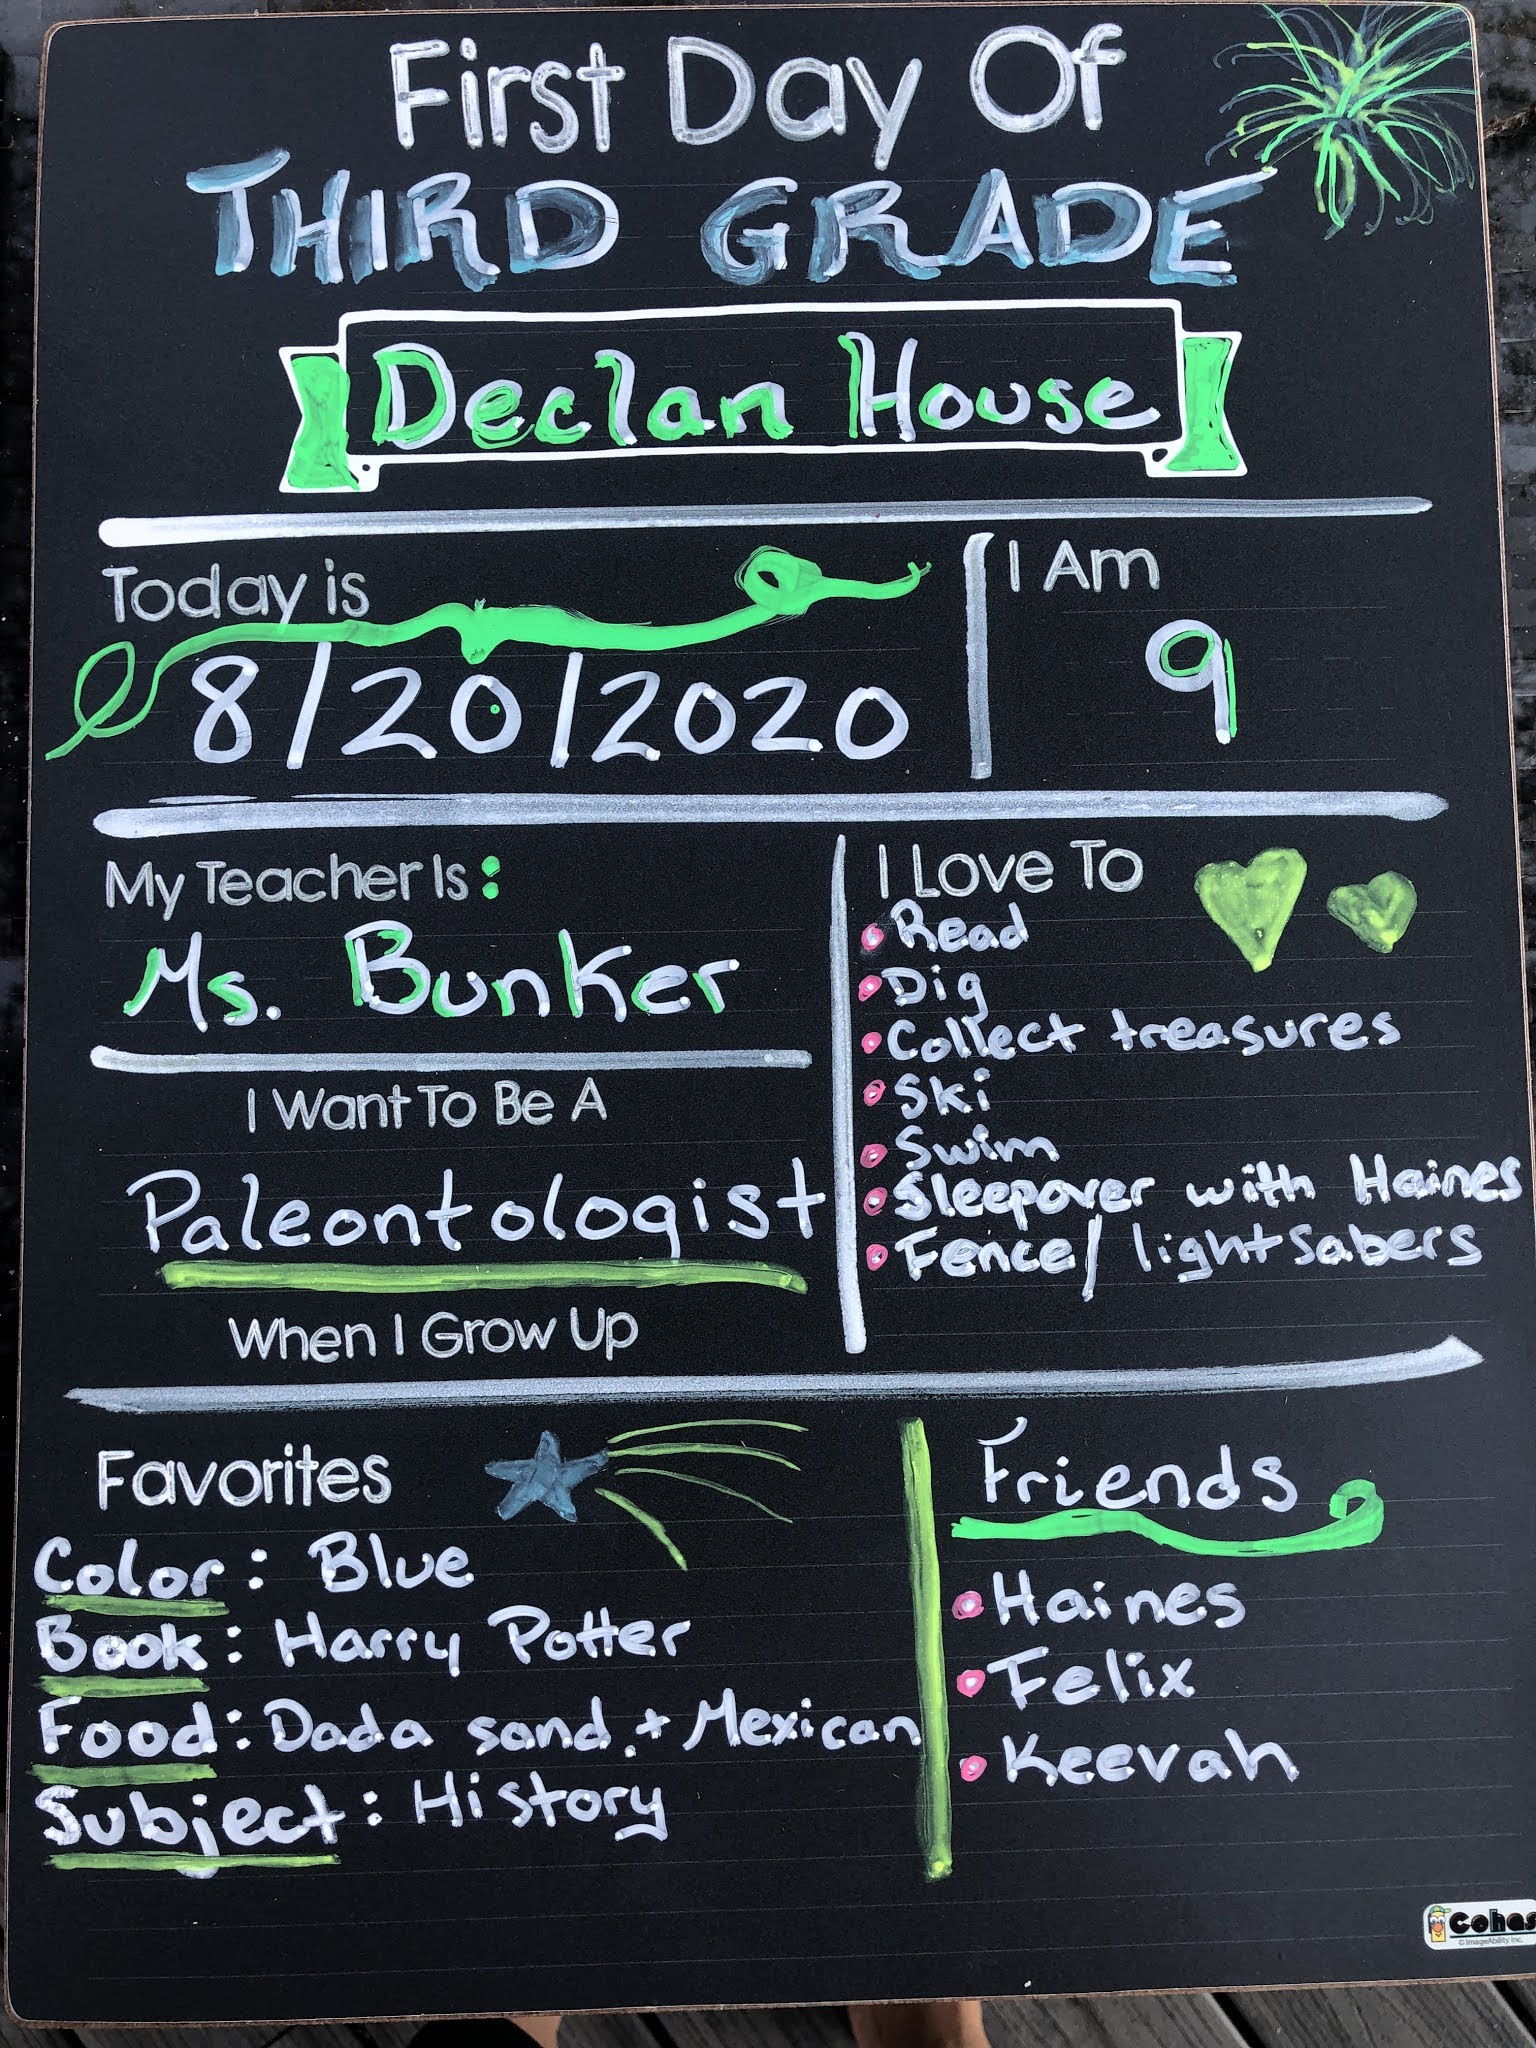 First Day Of
THIRD GRADE
Declan House
Today is
8/20/2020
I Am
9
My Teacher Is:
Ms. Bunker
I Want To Be A
Paleontologist
When I Grow Up
I Love To
Read
Dig
Collect treasures
Ski
Swim
Sleepover with Haines
Fence/ lightsabers
Favorites
Color: Blue
Book: Harry Potter
Food: Dada sand. + Mexican
Subject: History
Friends
Haines
Felix
Keevah
Cohas
© ImageAbility Inc.